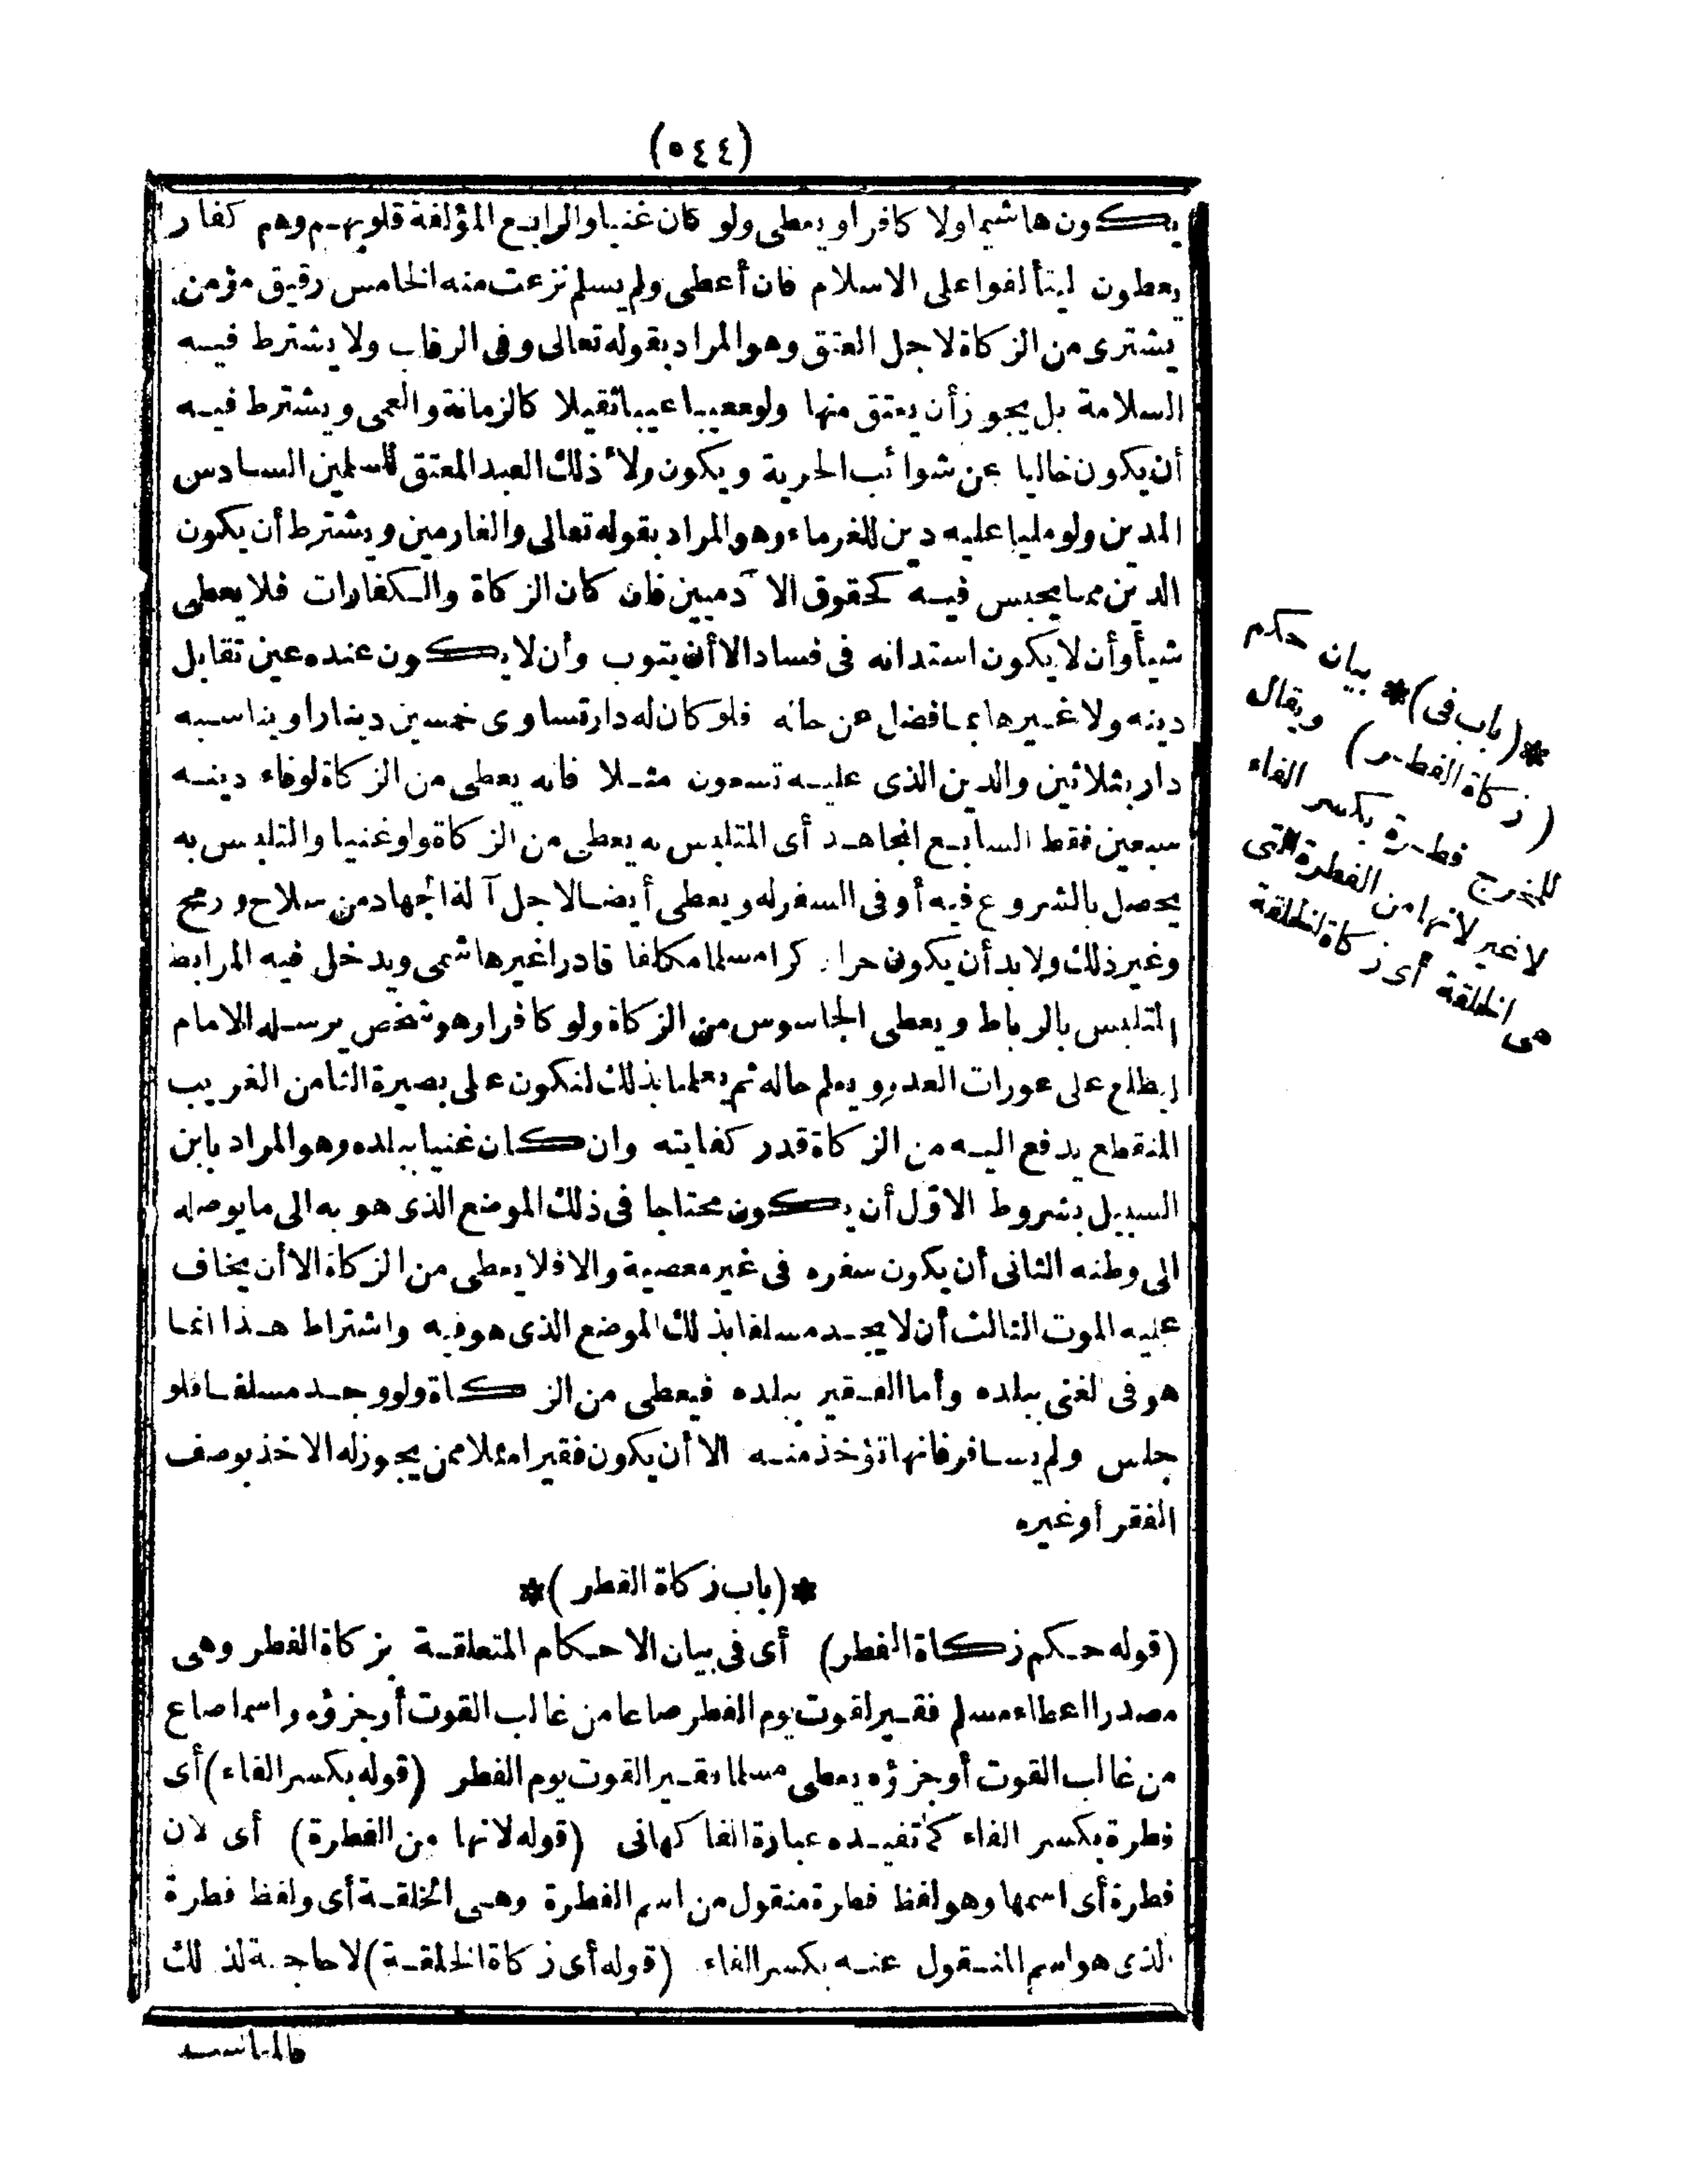 (٥٤٤)
يكون هاشميا ولا كافرا ويعطى ولو كان غنيا والرابع المؤلفة قلوبهم وهم كفار
يعطون ليتألفوا على الاسلام فان أعطى ولم يسلم نزعت منه الخامس رقيق مؤمن
يشترى من الزكاة لاجل العتق وهو المراد بقوله تعالى وفى الرقاب ولا يشترط فيه
السلامة بل يجوز أن يعتق منها ولو معيبا عيبا ثقيلا كالزمانة والعمى ويشترط فيه
أن يكون خاليا عن شوائب الحرية ويكون ولاء ذلك العبد المعتق للمسلمين السادس
المدين ولو مليا عليه دين للغرماء وهو المراد بقوله تعالى والغارمين ويشترط أن يكون
الدين مما يحبس فيه كحقوق الآدميين فان كان الزكاة والكفارات فلا يعطى
شيأ وأن لا يكون استدانه فى فساد الا أن يتوب وأن لا يكون عنده عين تقابل
دينه ولا غيرها بما فضل عن حاله فلو كان له دار تساوى خمسين دينارا ويناسبه
دار بثلاثين والدين الذى عليه تسعون مثلا فانه يعطى من الزكاة لوفاء دينه
سبعين فقط السابع المجاهد أى المتلبس به يعطى من الزكاة ولو غنيا والتلبس به
يحصل بالشروع فيه أو فى السفر له ويعطى أيضا لاجل آلة الجهاد من سلاح ورمح
وغير ذلك ولا بد أن يكون حرا ذكرا مسلما مكلفا قادرا غير هاشمى ويدخل فيه المرابط
المتلبس بالرباط ويعطى الجاسوس من الزكاة ولو كافرا وهو شخص يرسله الامام
ليطلع على عورات العدو ويعلم حاله ثم يعلمنا بذلك لنكون على بصيرة الثامن الغريب
المنقطع يدفع اليه من الزكاة قدر كفايته وان كان غنيا ببلده وهو المراد بابن
السبيل بشروط الاوّل أن يكون محتاجا فى ذلك الموضع الذى هو به الى ما يوصله
الى وطنه الثانى أن يكون سفره فى غير معصية والا فلا يعطى من الزكاة الا أن يخاف
عليه الموت الثالث أن لا يجد مسلفا بذلك الموضع الذى هو فيه واشتراط هذا انما
هو فى لغنى ببلده وأما الفقير ببلده فيعطى من الزكاة ولو وجد مسلفا فلو
جلس ولم يسافر فانها تؤخذ منه الا أن يكون فقيرا مثلا ممن يجوز له الاخذ بوصف
الفقر أو غيره
*(باب زكاة الفطر)*
(قوله حكم زكاة الفطر) أى فى بيان الاحكام المتعلقة بزكاة الفطر وهى
مصدرا اعطاء مسلم فقير لقوت يوم الفطر صاعا من غالب القوت أو جزؤه واسما صاع
من غالب القوت أو جزؤه يعطى مسلما فقير القوت يوم الفطر (قوله بكسر الفاء) أى
فطرة بكسر الفاء كما تفيده عبارة الفاكهانى (قوله لانها من الفطرة) أى لان
فطرة أى اسمها وهو لفظ فطرة منقول من اسم الفطرة وهى الخلقة أى ولفظ فطرة
الذى هو اسم المنقول عنه بكسر الفاء (قوله أى زكاة الخلقة) لا حاجة لذلك
*(باب فى)* بيان حكم
(زكاة الفطر) ويقال
للمخرج فطرة بكسر الفاء
لا غير لانها من الفطرة التى
هى الخلقة أى زكاة الخلقة